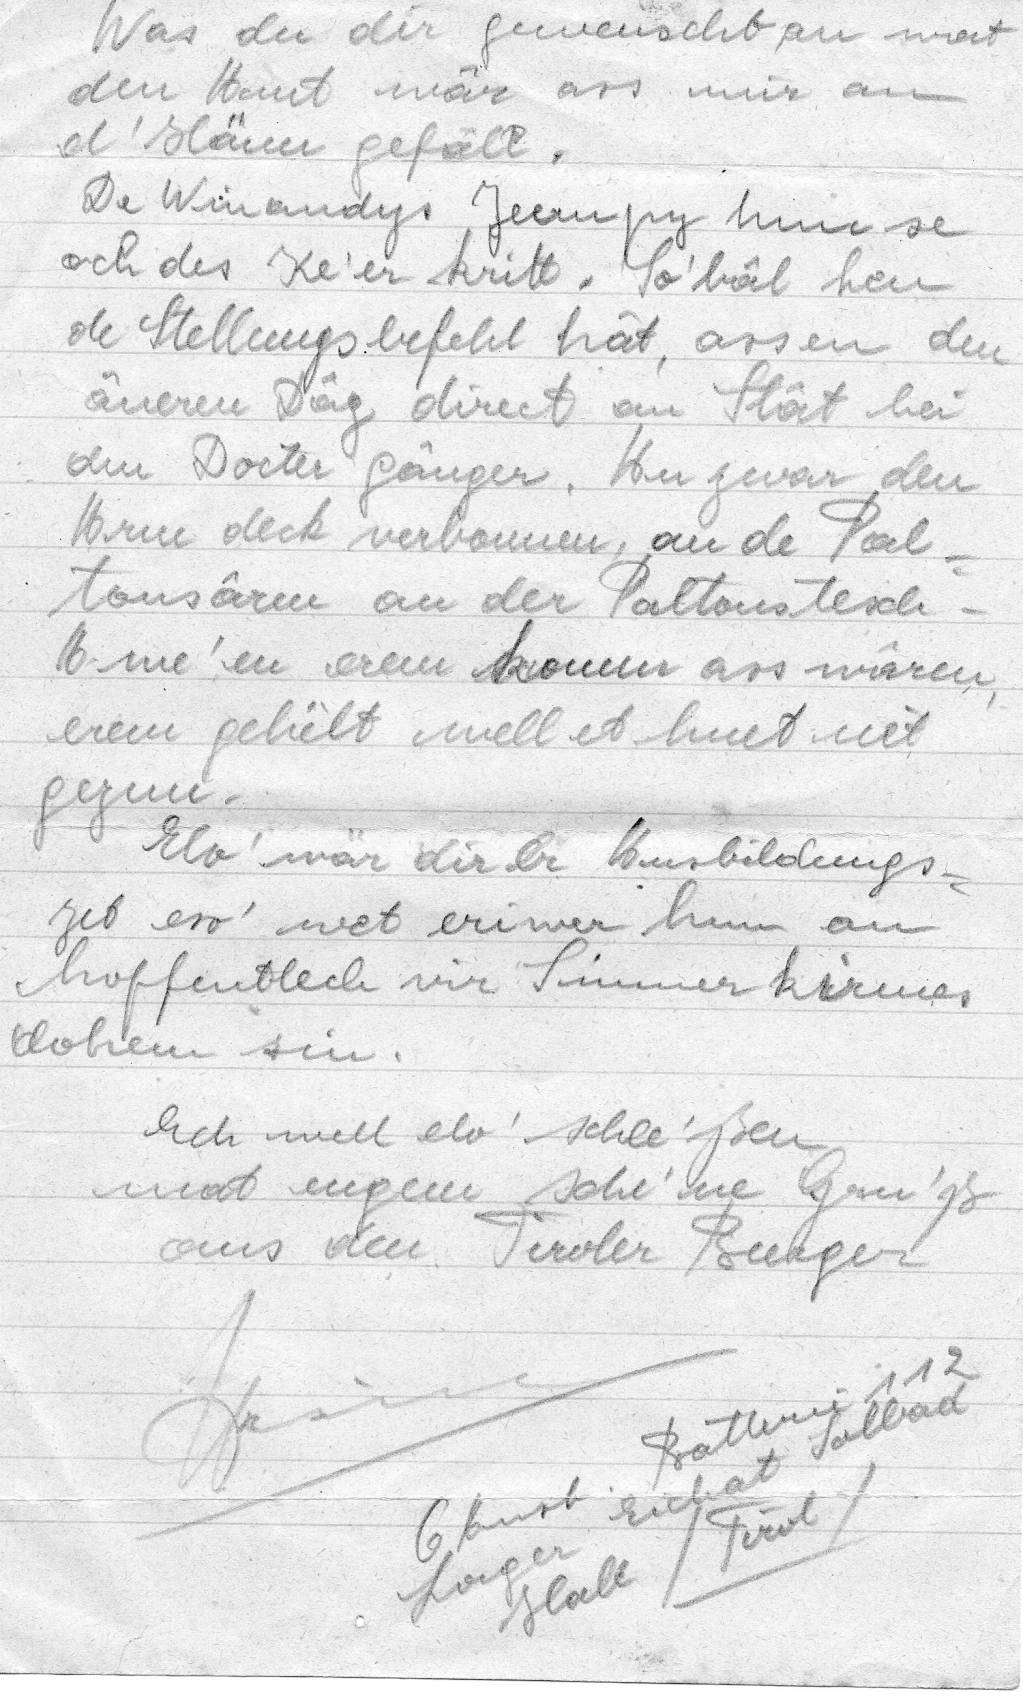 Was du dir gewenscht an wat
den Amt wär ass mir an
d'Hänn gefall.
De Winandys Jeempy hun se
och des Ke'er kritt. So'bâl hen
de Stellungsbefehl hât, assen den
äneren Dâg direct an Stât bei
den Docter gânger. An zwar den
Arm deck verbonnen, an de Pal-
tonsârem an der Paltonstesch-
A we'en erem komm ass wâren,
erem gehëlt well et huet nët
gezunn.
Elo' wär dir Er Ausbildungs-
zeit eso' wet eriwer hun an
hoffentlech vir Simmer kirmes
dohem sin.
Ech well elo' schle'ßen
mat engem sche'ne Gru'ß
aus den Tiroler Bierger
Batterie 112
6 Ausb. Eichat Solbad
Lager
Hall / Tirol /